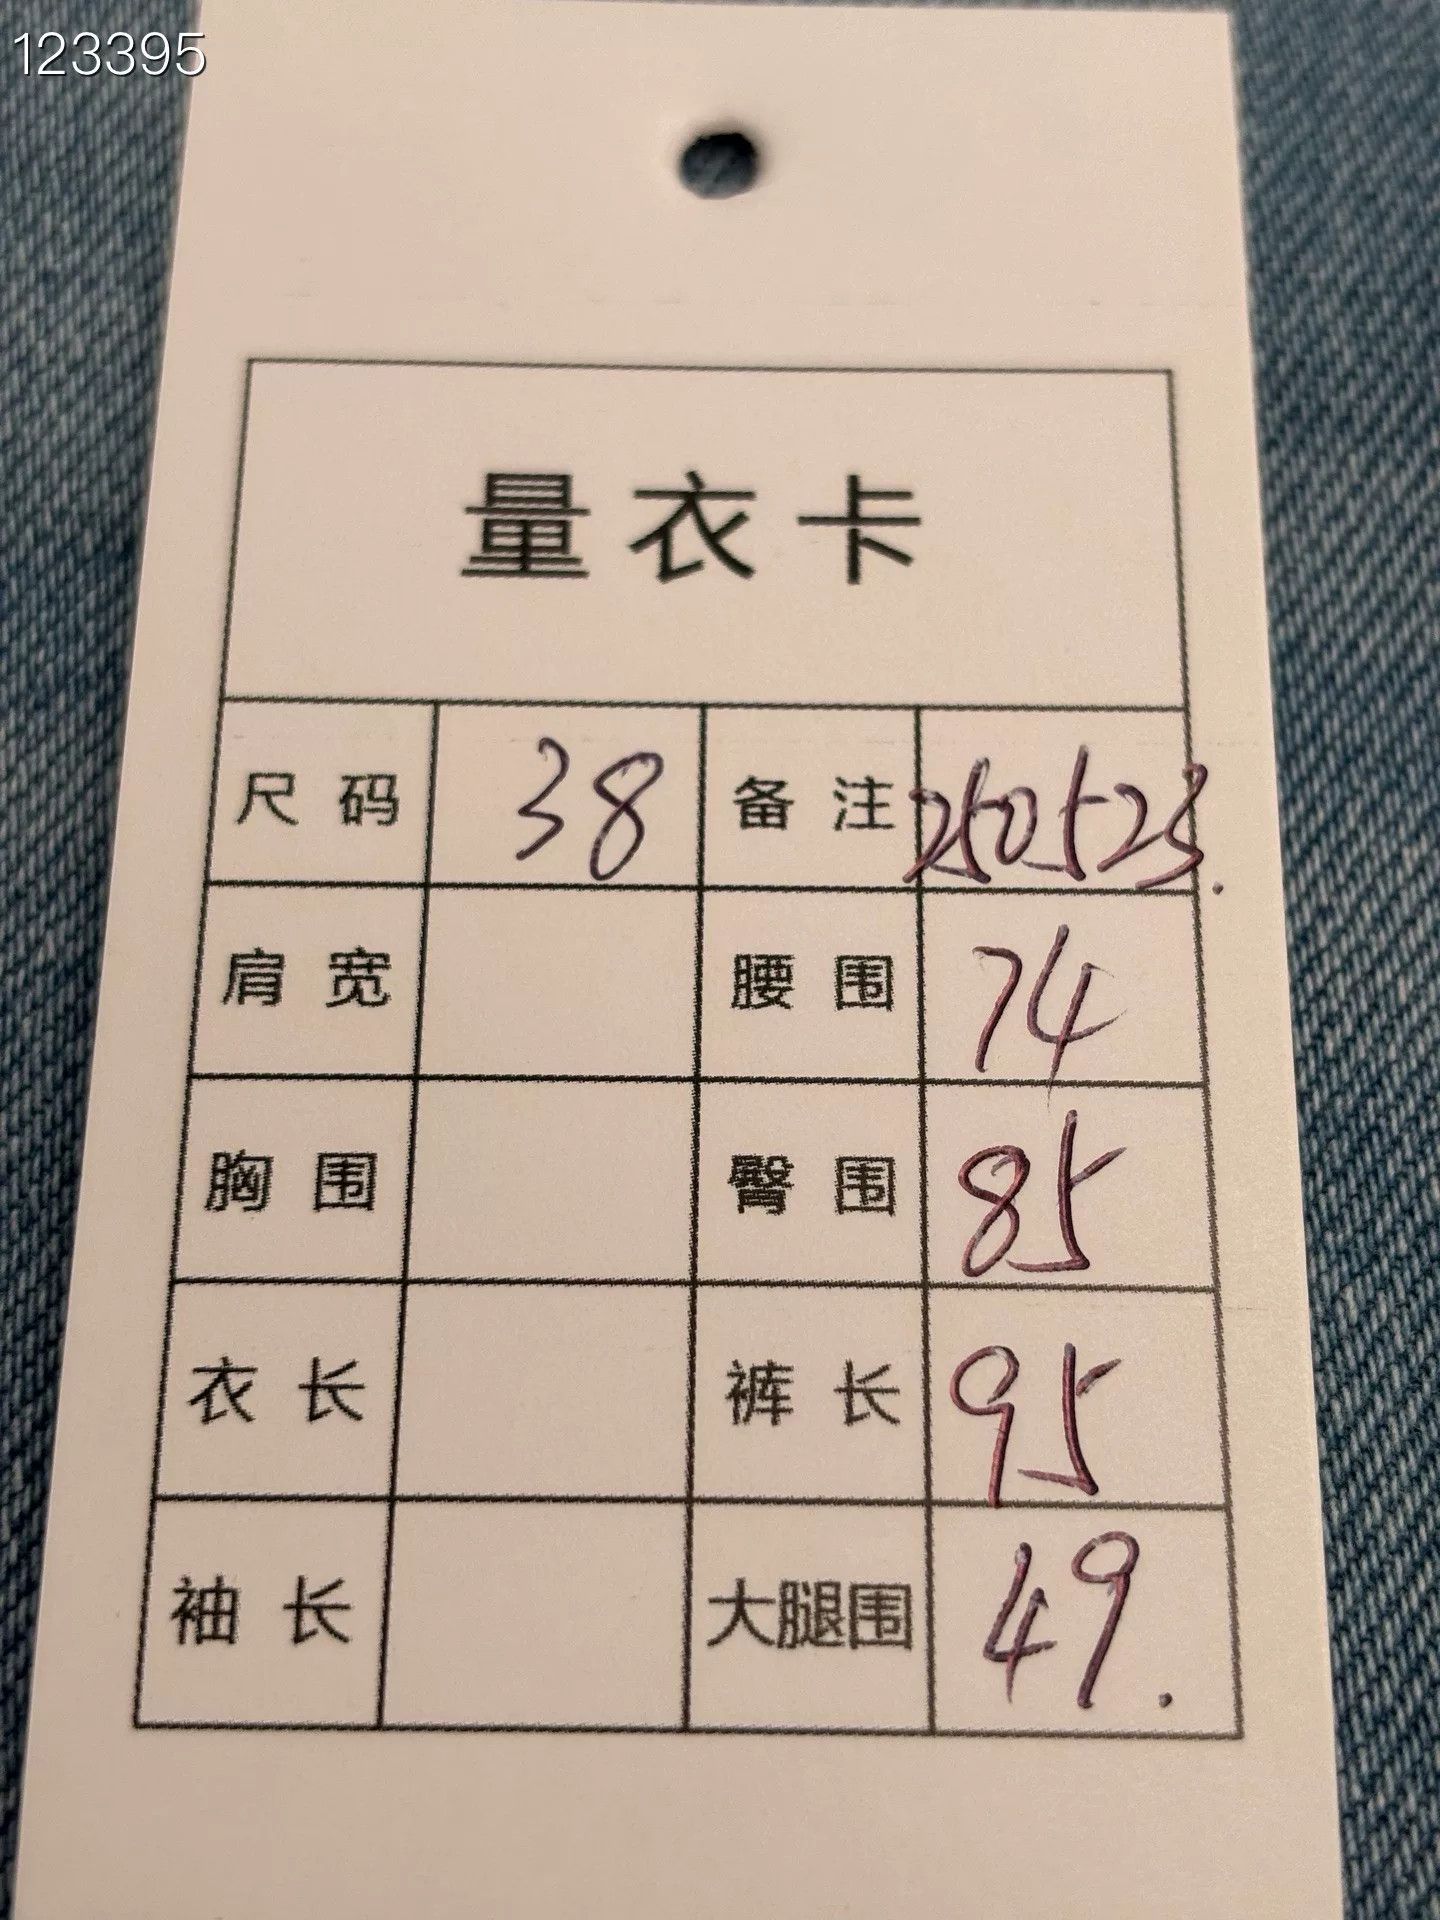 123395
量衣卡
尺码 38 备注 250523.
肩宽 腰围 74
胸围 臀围 85
衣长 裤长 95
袖长 大腿围 49.